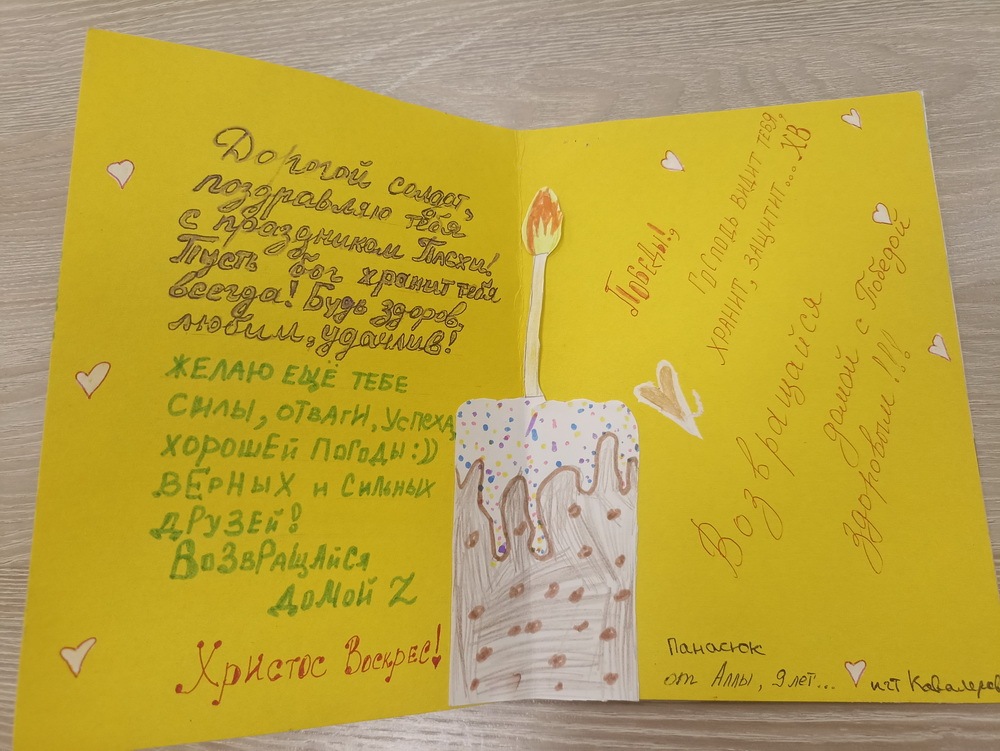 Дорогой солдат,
поздравляю тебя
с праздником Пасхи!
Пусть бог хранит тебя
всегда! Будь здоров,
любим, удачлив!
ЖЕЛАЮ ЕЩЁ ТЕБЕ
СИЛЫ, ОТВАГИ, УСПЕХА,
ХОРОШЕЙ ПОГОДЫ:))
ВЕРНЫХ и СИЛЬНЫХ
ДРУЗЕЙ!
ВОЗВРАЩАЙСЯ
ДОМОЙ Z
Христос Воскрес!
ПОБЕДЫ!
ГОСПОДЬ ВИДИТ ТЕБЯ,
ХРАНИТ, ЗАЩИТИТ... ХВ
Возвращайся
домой с Победой
здоровым!!!
Панасюк
от Аллы, 9 лет...
пгт Кавалерово